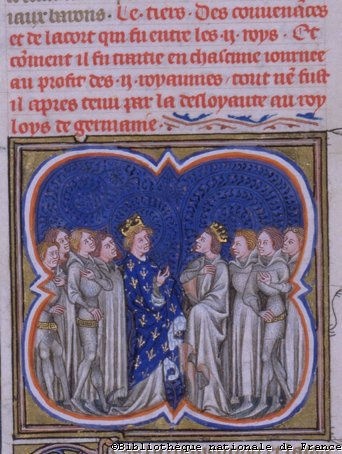 iaux barons. Le tiers. Des convenances
et de lacort qui fu entre les .ij. roys. Et
coment il fu traitie en chascune iournee
au profit des .ij. royaumes. tout ne fust
il apres tenu par la desloyaute au roy
loys de germanie.
©Bibliothèque nationale de France